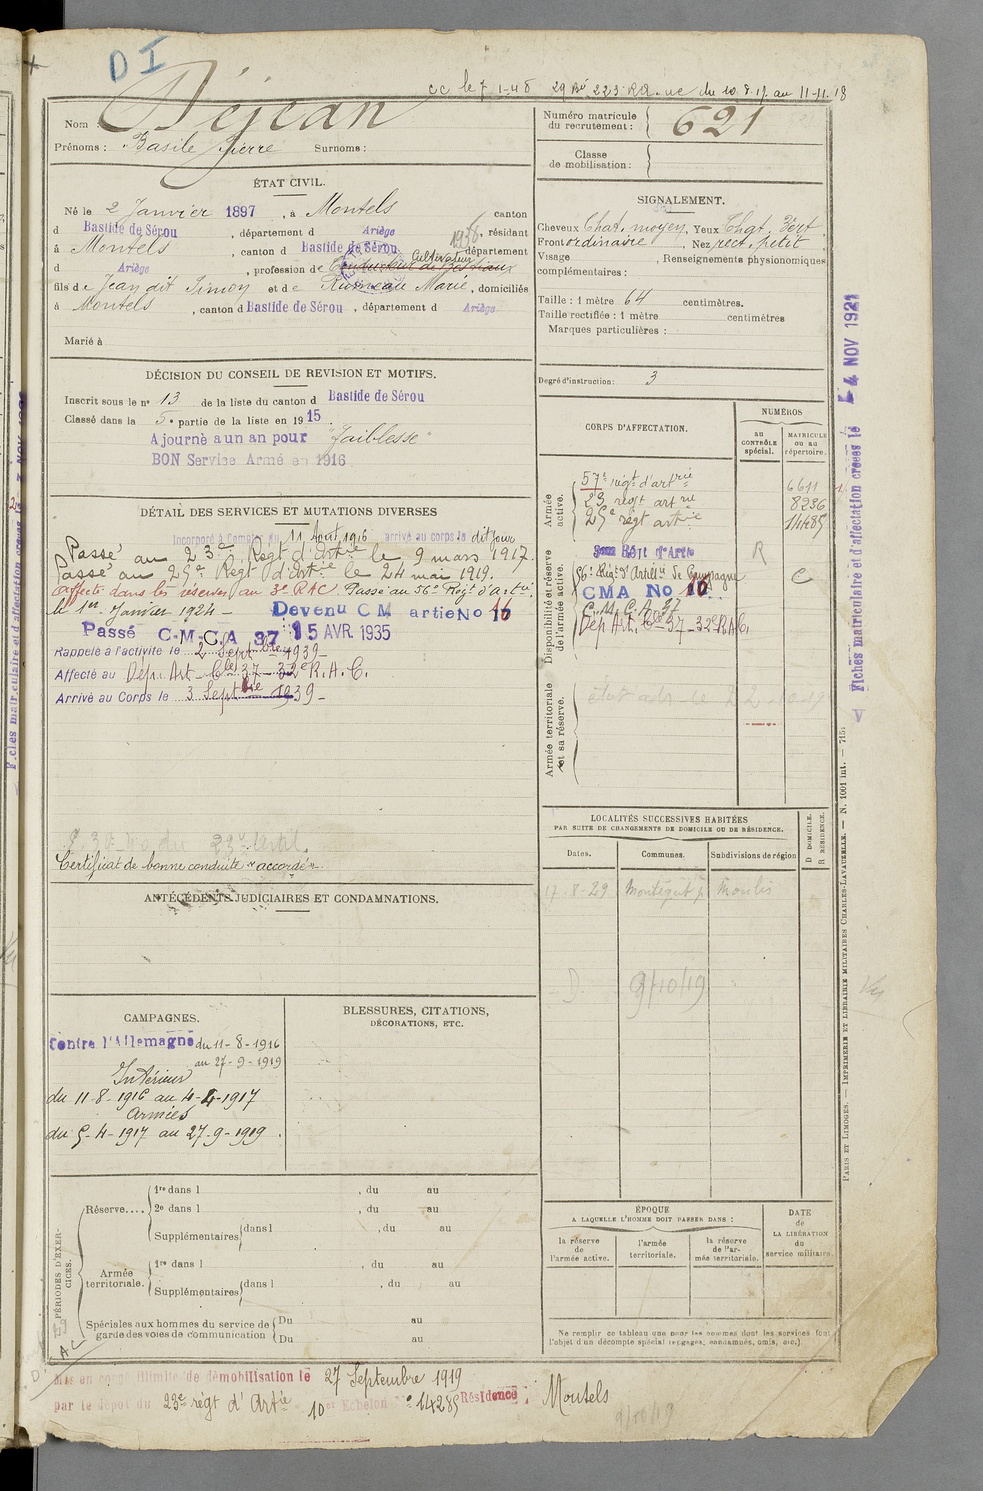 D I
cc le 7-1-48 29 Bie 223 RA. du 10.8.17 au 11-11-18
Nom : Déjean
Prénoms : Basile Pierre Surnoms :
Numéro matricule du recrutement : 621
Classe de mobilisation :
ÉTAT CIVIL.
Né le 2 Janvier 1897, à Montels canton
d Bastide de Sérou, département d Ariège résidant
à Montels, canton d Bastide de Sérou département
1938 Cultivateur
d Ariège, profession de Conducteur de Bestiaux
fils de Jean dit Simon et de Marie, domiciliés
à Montels, canton d Bastide de Sérou, département d Ariège
Marié à
SIGNALEMENT.
Cheveux Chat. moyen, Yeux Chat. Vert
Front ordinaire, Nez rect. petit
Visage , Renseignements physionomiques
complémentaires :
Taille : 1 mètre 64 centimètres.
Taille rectifiée : 1 mètre centimètres
Marques particulières :
Degré d'instruction : 3
DÉCISION DU CONSEIL DE REVISION ET MOTIFS.
Inscrit sous le no 13 de la liste du canton d Bastide de Sérou
Classé dans la 5e partie de la liste en 1915
Ajourné a un an pour "Faiblesse"
BON Service Armé en 1916
DÉTAIL DES SERVICES ET MUTATIONS DIVERSES
Incorporé à Compter du 11 Août 1916 arrivé au corps le dit jour
Passé au 23e Régt d'Artie le 9 mars 1917.
Passé au 25e Régt d'Artie le 24 mai 1919.
Affecté dans les réserves au 3e RAC. Passé au 56e Régt d'Artie
le 1er Janvier 1924 - Devenu CM artie No 16
Passé C.M.C.A 37 15 AVR. 1935
Rappelé à l'activité le 2 Septbre 1939-
Affecté au Dépt. Art. Cle 37-32e R.A.C.
Arrivé au Corps le 3 Septbre 1939-
Certificat de bonne conduite "accordé"
CORPS D'AFFECTATION.
NUMÉROS
au CONTRÔLE spécial.
MATRICULE ou au répertoire.
Armée active.
57e régt d'artrie 6611
23 régt artrie 8236
25e régt artie 14485
Disponibilité et réserve de l'armée active.
R
56e Régt d'Artie de Campagne
C
CMA No 16
C.M.C.A 37
Dép Art. Cle 37-32e R.A.C.
Armée territoriale et sa réserve.
22.10.19
LOCALITÉS SUCCESSIVES HABITÉES
PAR SUITE DE CHANGEMENTS DE DOMICILE OU DE RÉSIDENCE.
Dates. Communes. Subdivisions de région
D DOMICILE. R RÉSIDENCE.
17-8-29 Montégut p. Moulis
D. 9/10/19
ANTÉCÉDENTS JUDICIAIRES ET CONDAMNATIONS.
CAMPAGNES.
Contre l'Allemagne du 11-8-1916
au 27-9-1919
Intérieur
du 11-8-1916 au 4-4-1917
Armées
du 5-4-1917 au 27-9-1919.
BLESSURES, CITATIONS,
DÉCORATIONS, ETC.
PÉRIODES D'EXERCICES.
Réserve....
1re dans l , du au
2e dans l , du au
Supplémentaires dans l , du au
Armée territoriale.
1re dans l , du au
Supplémentaires dans l , du au
Spéciales aux hommes du service de garde des voies de communication
Du au
Du au
ÉPOQUE
A LAQUELLE L'HOMME DOIT PASSER DANS :
la réserve de l'armée active.
l'armée territoriale.
la réserve de l'armée territoriale.
DATE de LA LIBÉRATION du service militaire.
Ne remplir ce tableau que pour les hommes dont les services font
l'objet d'un décompte spécial (engagés, condamnés, omis, etc.).
Mis en congé illimité de démobilisation le 27 Septembre 1919
par le dépôt du 23e régt d'Artie 10e Echelon no 14285 Résidence : Montels
9/10/19
Fiches matriculaire et d'affectation créées le 4 NOV 1921
PARIS ET LIMOGES. — IMPRIMERIE ET LIBRAIRIE MILITAIRES CHARLES-LAVAUZELLE. — N. 1001 int. — 715.